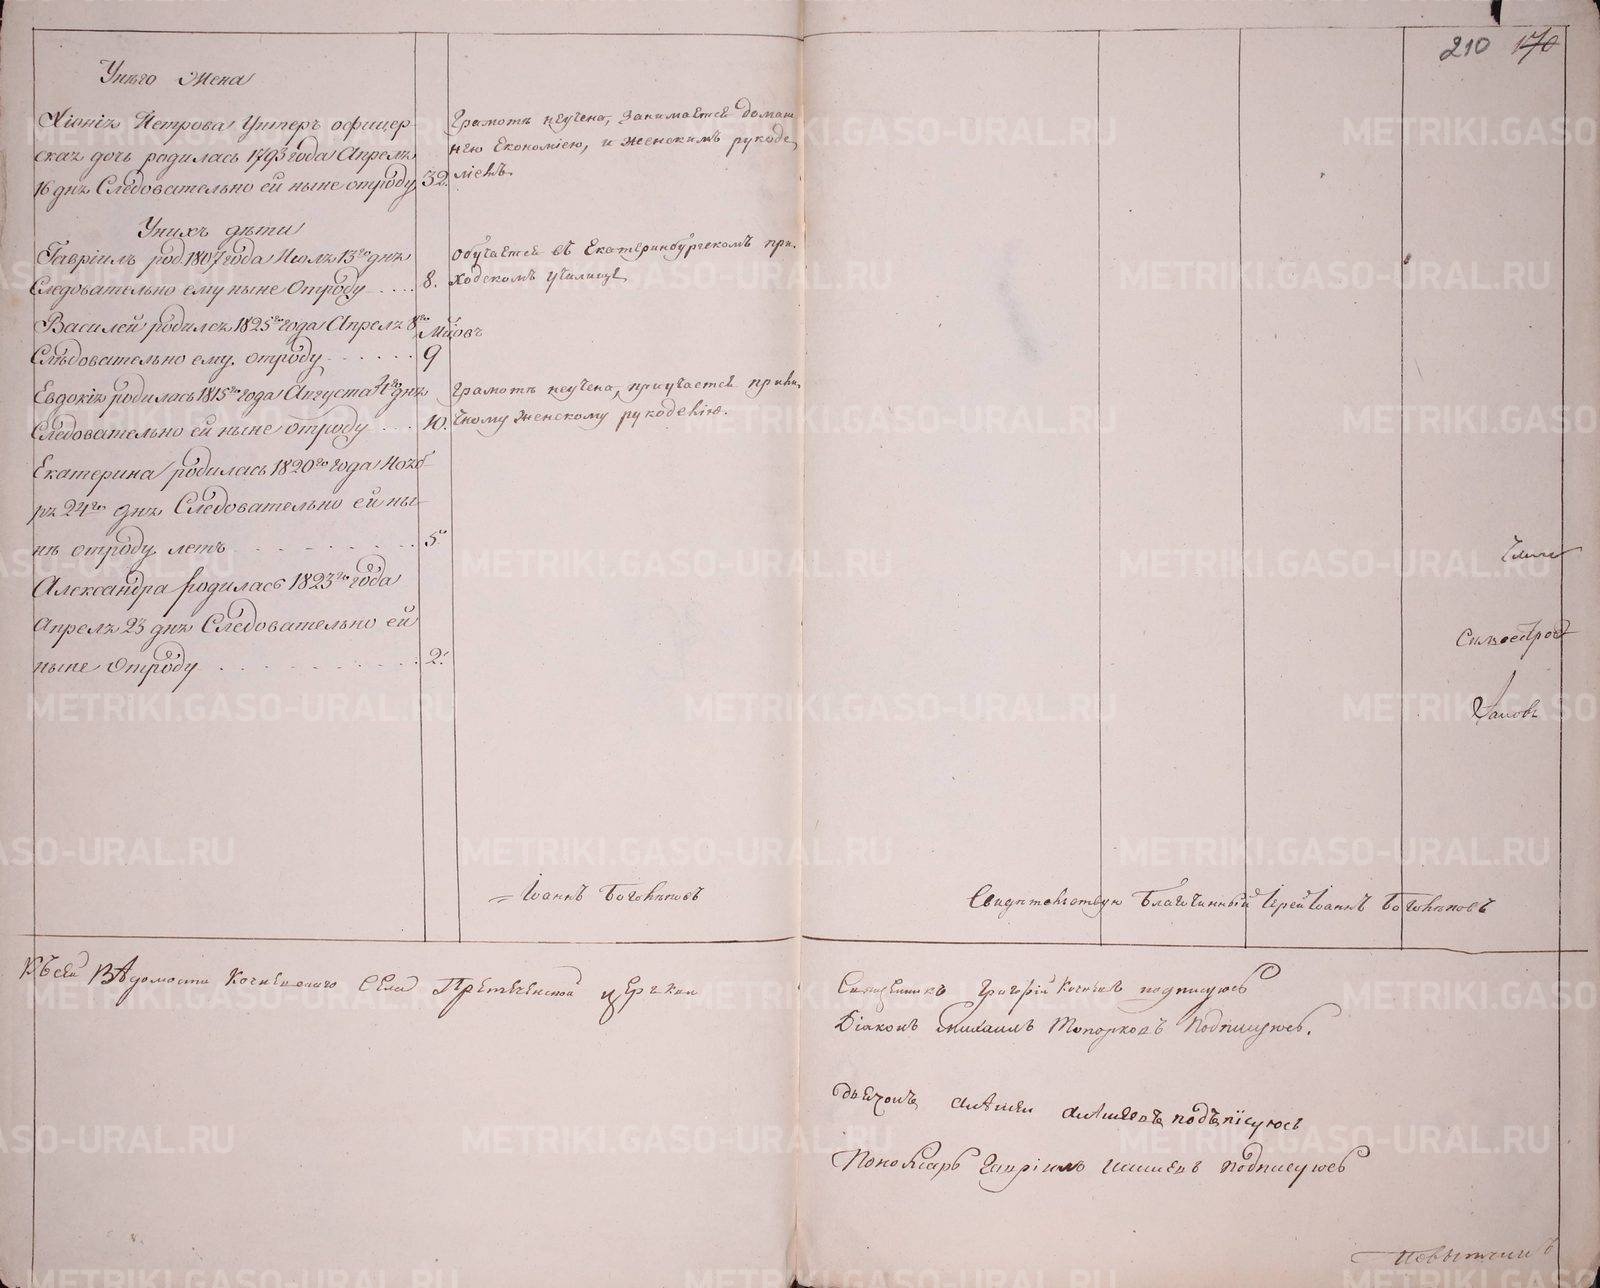 210 170
У него жена
Хіонія Петрова Унтеръ офицер-
ская дочь родилась 1793 года Апреля
16 дня Следовательно ей ныне отроду 32.
Грамотѣ неучена, занимается домаш
нею Економіею, и женскимъ рукоде
ліемъ.
У нихъ дѣти
Гавріилъ род 1807 года Июля 13го дня
Следовательно ему ныне Отроду .... 8.
Обучается въ Екатеринбургскомъ при-
ходскомъ училище
Василей родился 1825го года Апреля 8го
Следовательно ему отроду ...... 9
Евдокія родилась 1815го года Августа дня
Следовательно ей ныне отроду ... 10.
Грамотѣ неучена, приучается прили
чному женскому рукоделію.
Екатерина родилась 1820го года Нояб
ря 24го дня Следовательно ей ны-
нѣ отроду летъ ......... 5
Александра родилась 1823го года
Апреля 23 дня Следовательно ей
ныне Отроду ........... 2.
Іоаннъ Боголѣповъ
Свидѣтельствую Благочинный Іерей Іоаннъ Боголѣповъ
Къ сей Вѣдомости Кочневскаго Села Претеченской церкви
Священникъ Григорій Кочневъ подписуюсь
Діаконъ Михаилъ Топорковъ Подписуюсь.
дьячокъ подъписуюсь
Пономарь Гавріилъ Шишевъ подписуюсь
METRIKI.GASO-URAL.RU